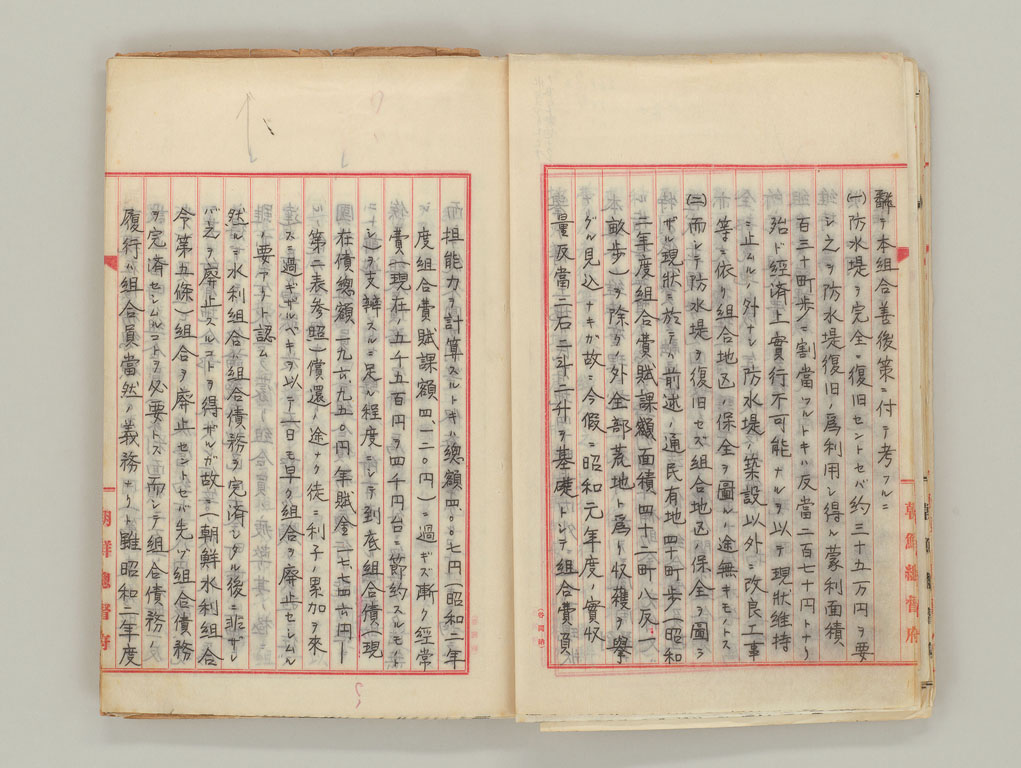 飜テ本組合善後策ニ付テ考フルニ
(一)防水堤ヲ完全ニ復旧セントセバ約三十五万円ヲ要
シ之ヲ防水堤復旧ノ為利用シ得ル蒙利面積
百三十町歩ニ割当ツルトキハ反当二百七十円トナリ
殆ド経済上実行不可能ナルヲ以テ現状維持
ニ止ムルノ外ナシ防水堤ノ築設以外ニ改良工事
等ニ依リ組合地区ノ保全ヲ圖ルノ途無キモノトス
(二)而シテ防水堤ヲ復旧セズ組合地区ノ保全ヲ圖ラ
ザル現状ニ於テハ前述ノ通民有地四十町歩(昭和
二年度組合費賦課額面積四十二町八反一
畝歩)ヲ除ク外全部荒地ト為リ収穫ヲ挙
グル見込ナキカ故ニ今假ニ昭和元年度ノ實収
量反當二石二斗二升ヲ基礎トシテ組合費負
而担能力ヲ計算スルトキハ總額四、〇〇七円(昭和二年
度組合費賦課額四、一二〇円)ニ過ギズ漸ク経常
費(現在ノ五千五百円ヲ四千円台ニ節約スルモノト
シ)ヲ支辨スルニ足ル程度ニシテ到底組合債(現
在債總額一九六、九五〇円年賦金一七、七四六円
第二表参照)償還ノ途ナク徒ニ利子ノ累加ヲ来
スニ過ギザルベキヲ以テ一日モ早ク組合ヲ廃止セシムル
ノ要アリト認ム
然ルニ水利組合ハ組合債務ヲ完済シタル後ニ非ザレ
バ之ヲ廃止スルコトヲ得ザルガ故ニ(朝鮮水利組合
令第五條)組合ヲ廃止セントセバ先ヅ組合債務
ヲ完済セシムルコトヲ必要トス而シテ組合債務ノ
履行ハ組合員當然ノ義務ナリト雖昭和二年度
朝鮮總督府
朝鮮總督府